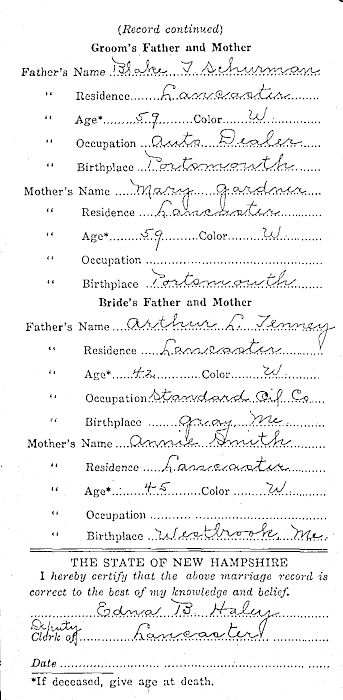 (Record continued)
Groom's Father and Mother
Father's Name Blake T Schurman
" Residence Lancaster
" Age* 59 Color W.
" Occupation Auto Dealer
" Birthplace Portsmouth
Mother's Name Mary Gardner
" Residence Lancaster
" Age* 59 Color W.
" Occupation
" Birthplace Portsmouth
Bride's Father and Mother
Father's Name Arthur L. Tenney
" Residence Lancaster
" Age* 42 Color W
" Occupation Standard Oil Co
" Birthplace Gray Me.
Mother's Name Annie Smith
" Residence Lancaster
" Age* 45 Color W
" Occupation
" Birthplace Westbrook Me.
THE STATE OF NEW HAMPSHIRE
I hereby certify that the above marriage record is
correct to the best of my knowledge and belief.
Edna B Haley
Deputy
Clerk of Lancaster
Date
*If deceased, give age at death.